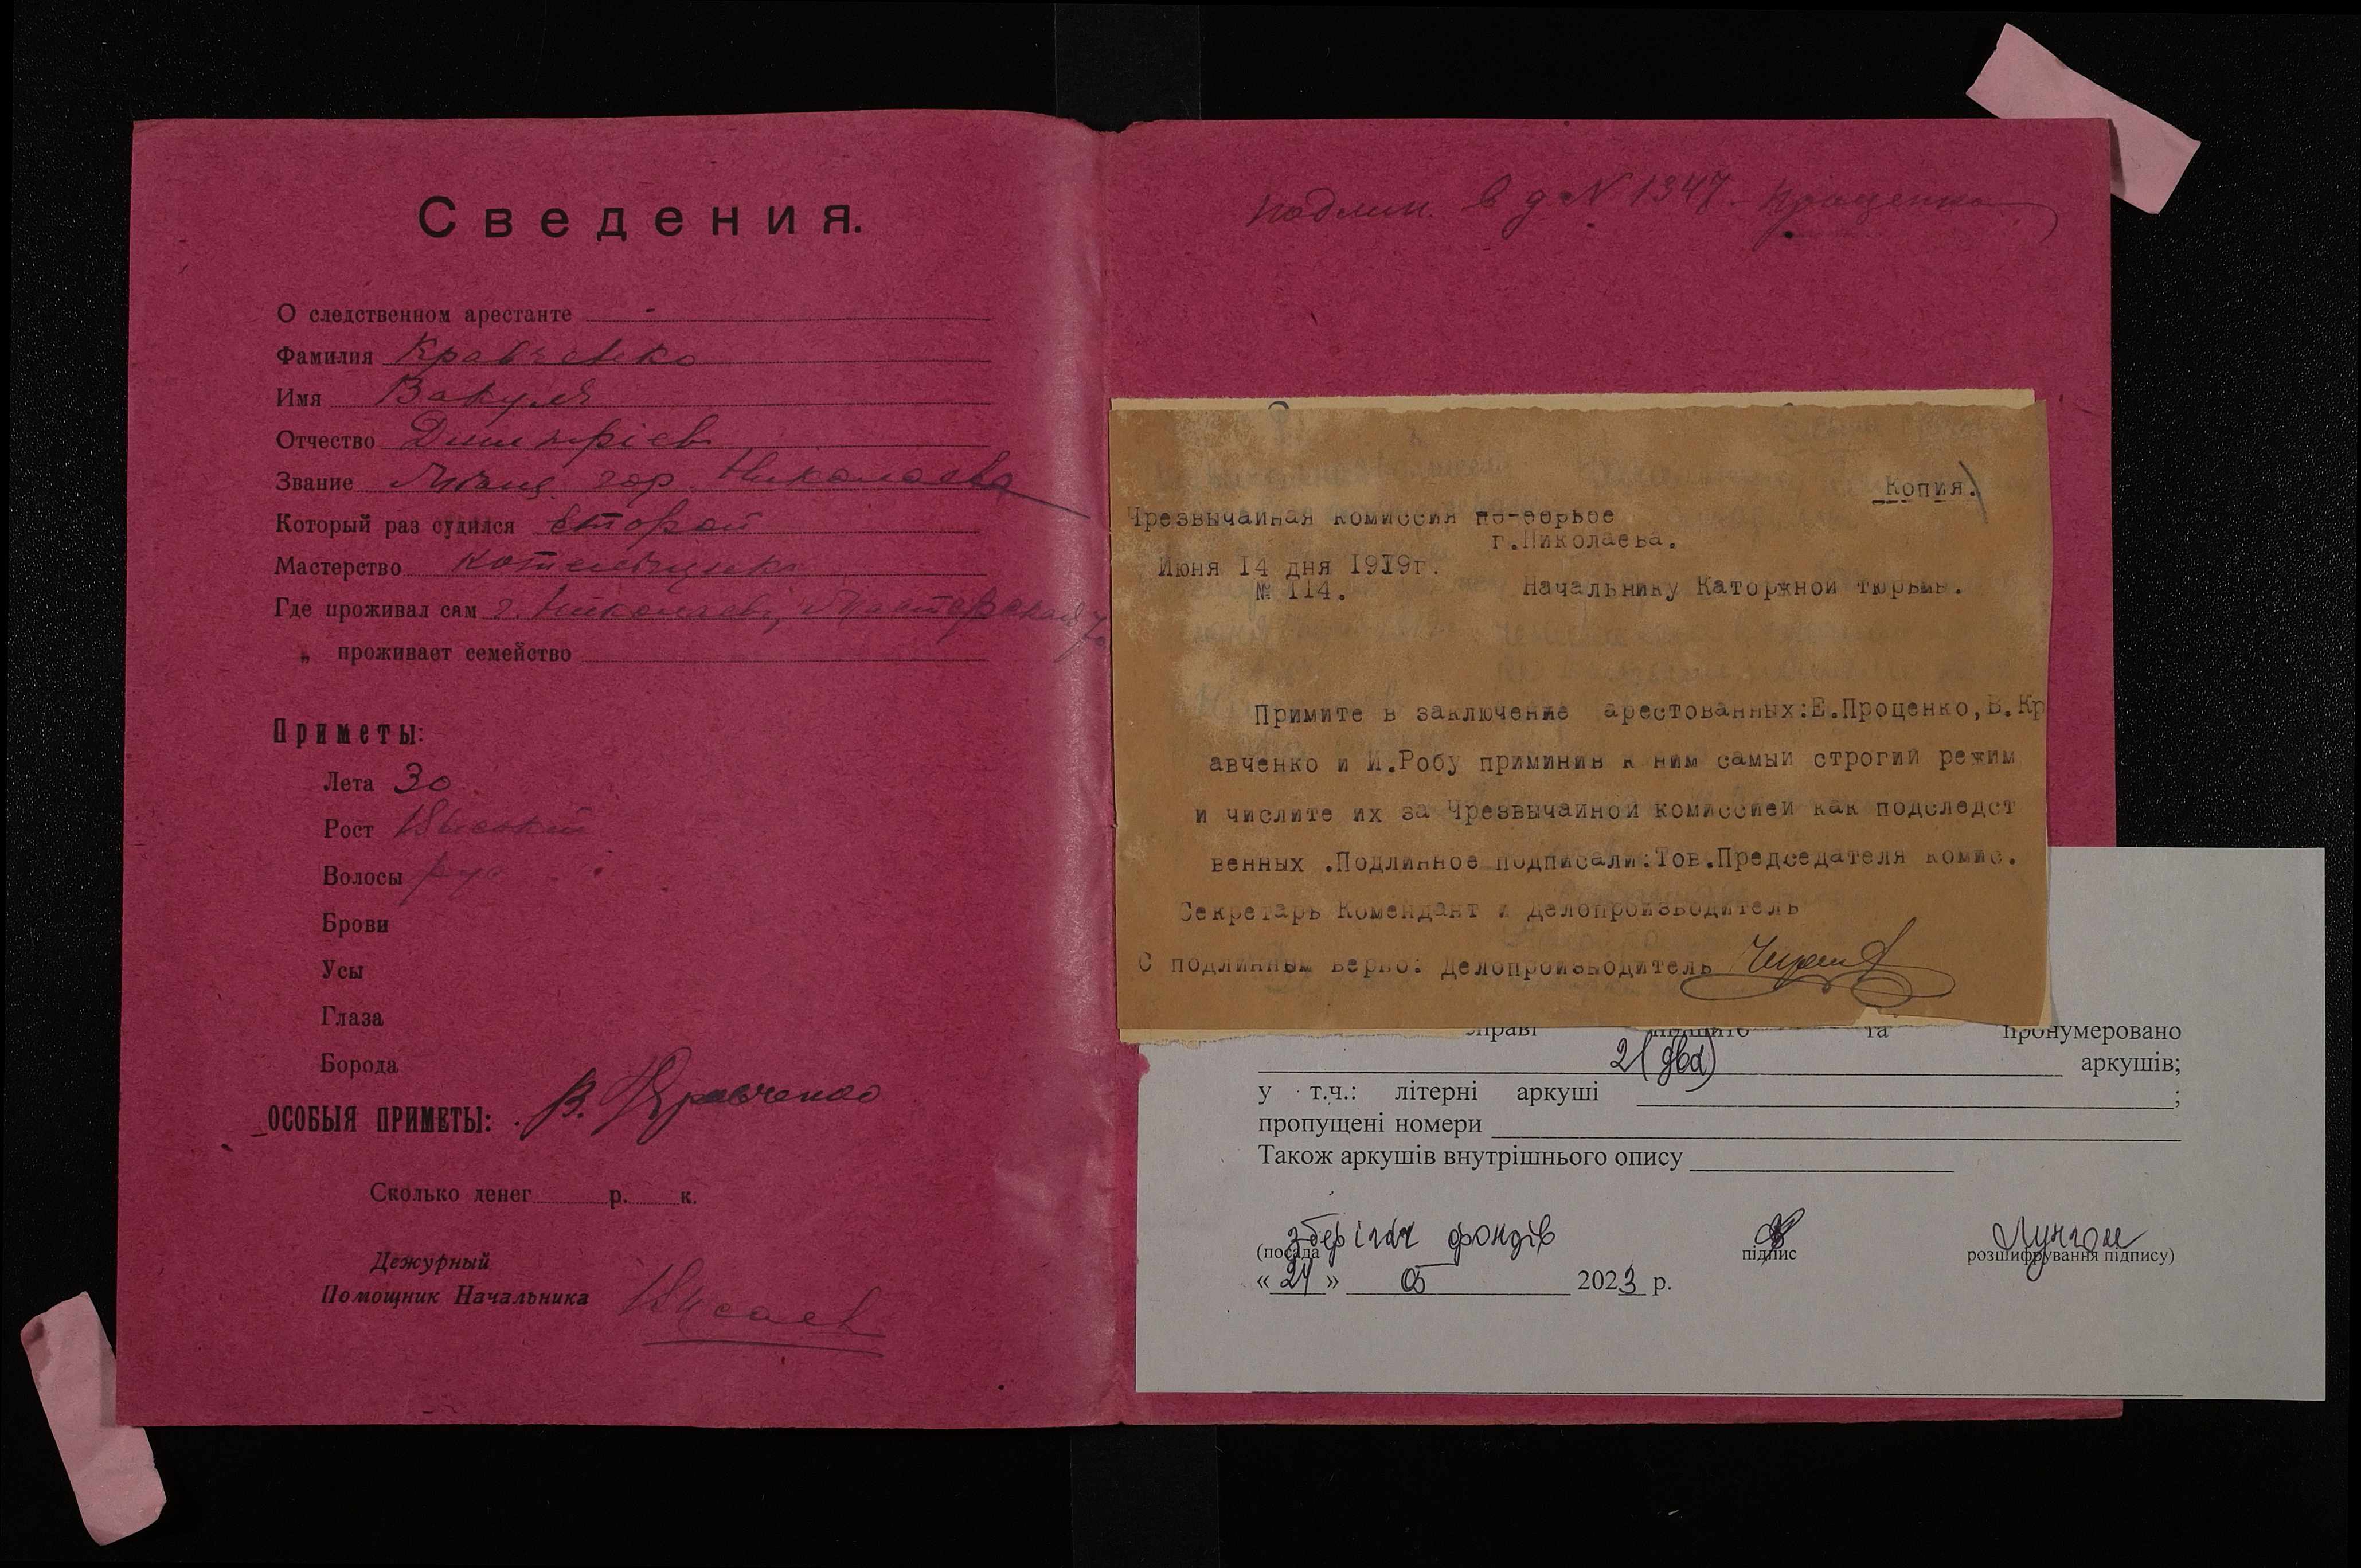 Сведения.
О следственном арестанте -
Фамилия Кравченко
Имя Вакула
Отчество Дмитріев
Звание Мѣщ. гор. Николаева
Который раз судился второй
Мастерство котельщик
Где проживал сам г. Николаев,
„ проживает семейство
Приметы:
Лета 30
Рост Высокий
Волосы рус
Брови
Усы
Глаза
Борода
ОСОБЫЯ ПРИМЕТЫ: В. Кравченко
Сколько денег р. к.
Дежурный
Помощник Начальника
подлин. в д N 1347 - Проценко
Копия.
Чрезвычайная Комиссия по борьбе
г.Николаева.
Июня 14 дня 1919г.
№ 114.
Начальнику Каторжной тюрьмы.
Примите в заключение арестованных:Е.Проценко,В.Кр
авченко и И.Робу приминив к ним самый строгий режим
и числите их за Чрезвычайной комиссией как подследст
венных .Подлинное подписали:Тов.Председателя комис.
Секретарь Комендант и Делопроизводитель
С подлинным верно: Делопроизводитель
справі підшито та пронумеровано
2 (два) аркушів;
у т.ч.: літерні аркуші ;
пропущені номери
Також аркушів внутрішнього опису
зберігач фондів
(посада підпис розшифрування підпису)
« 24 » 05 2023 р.